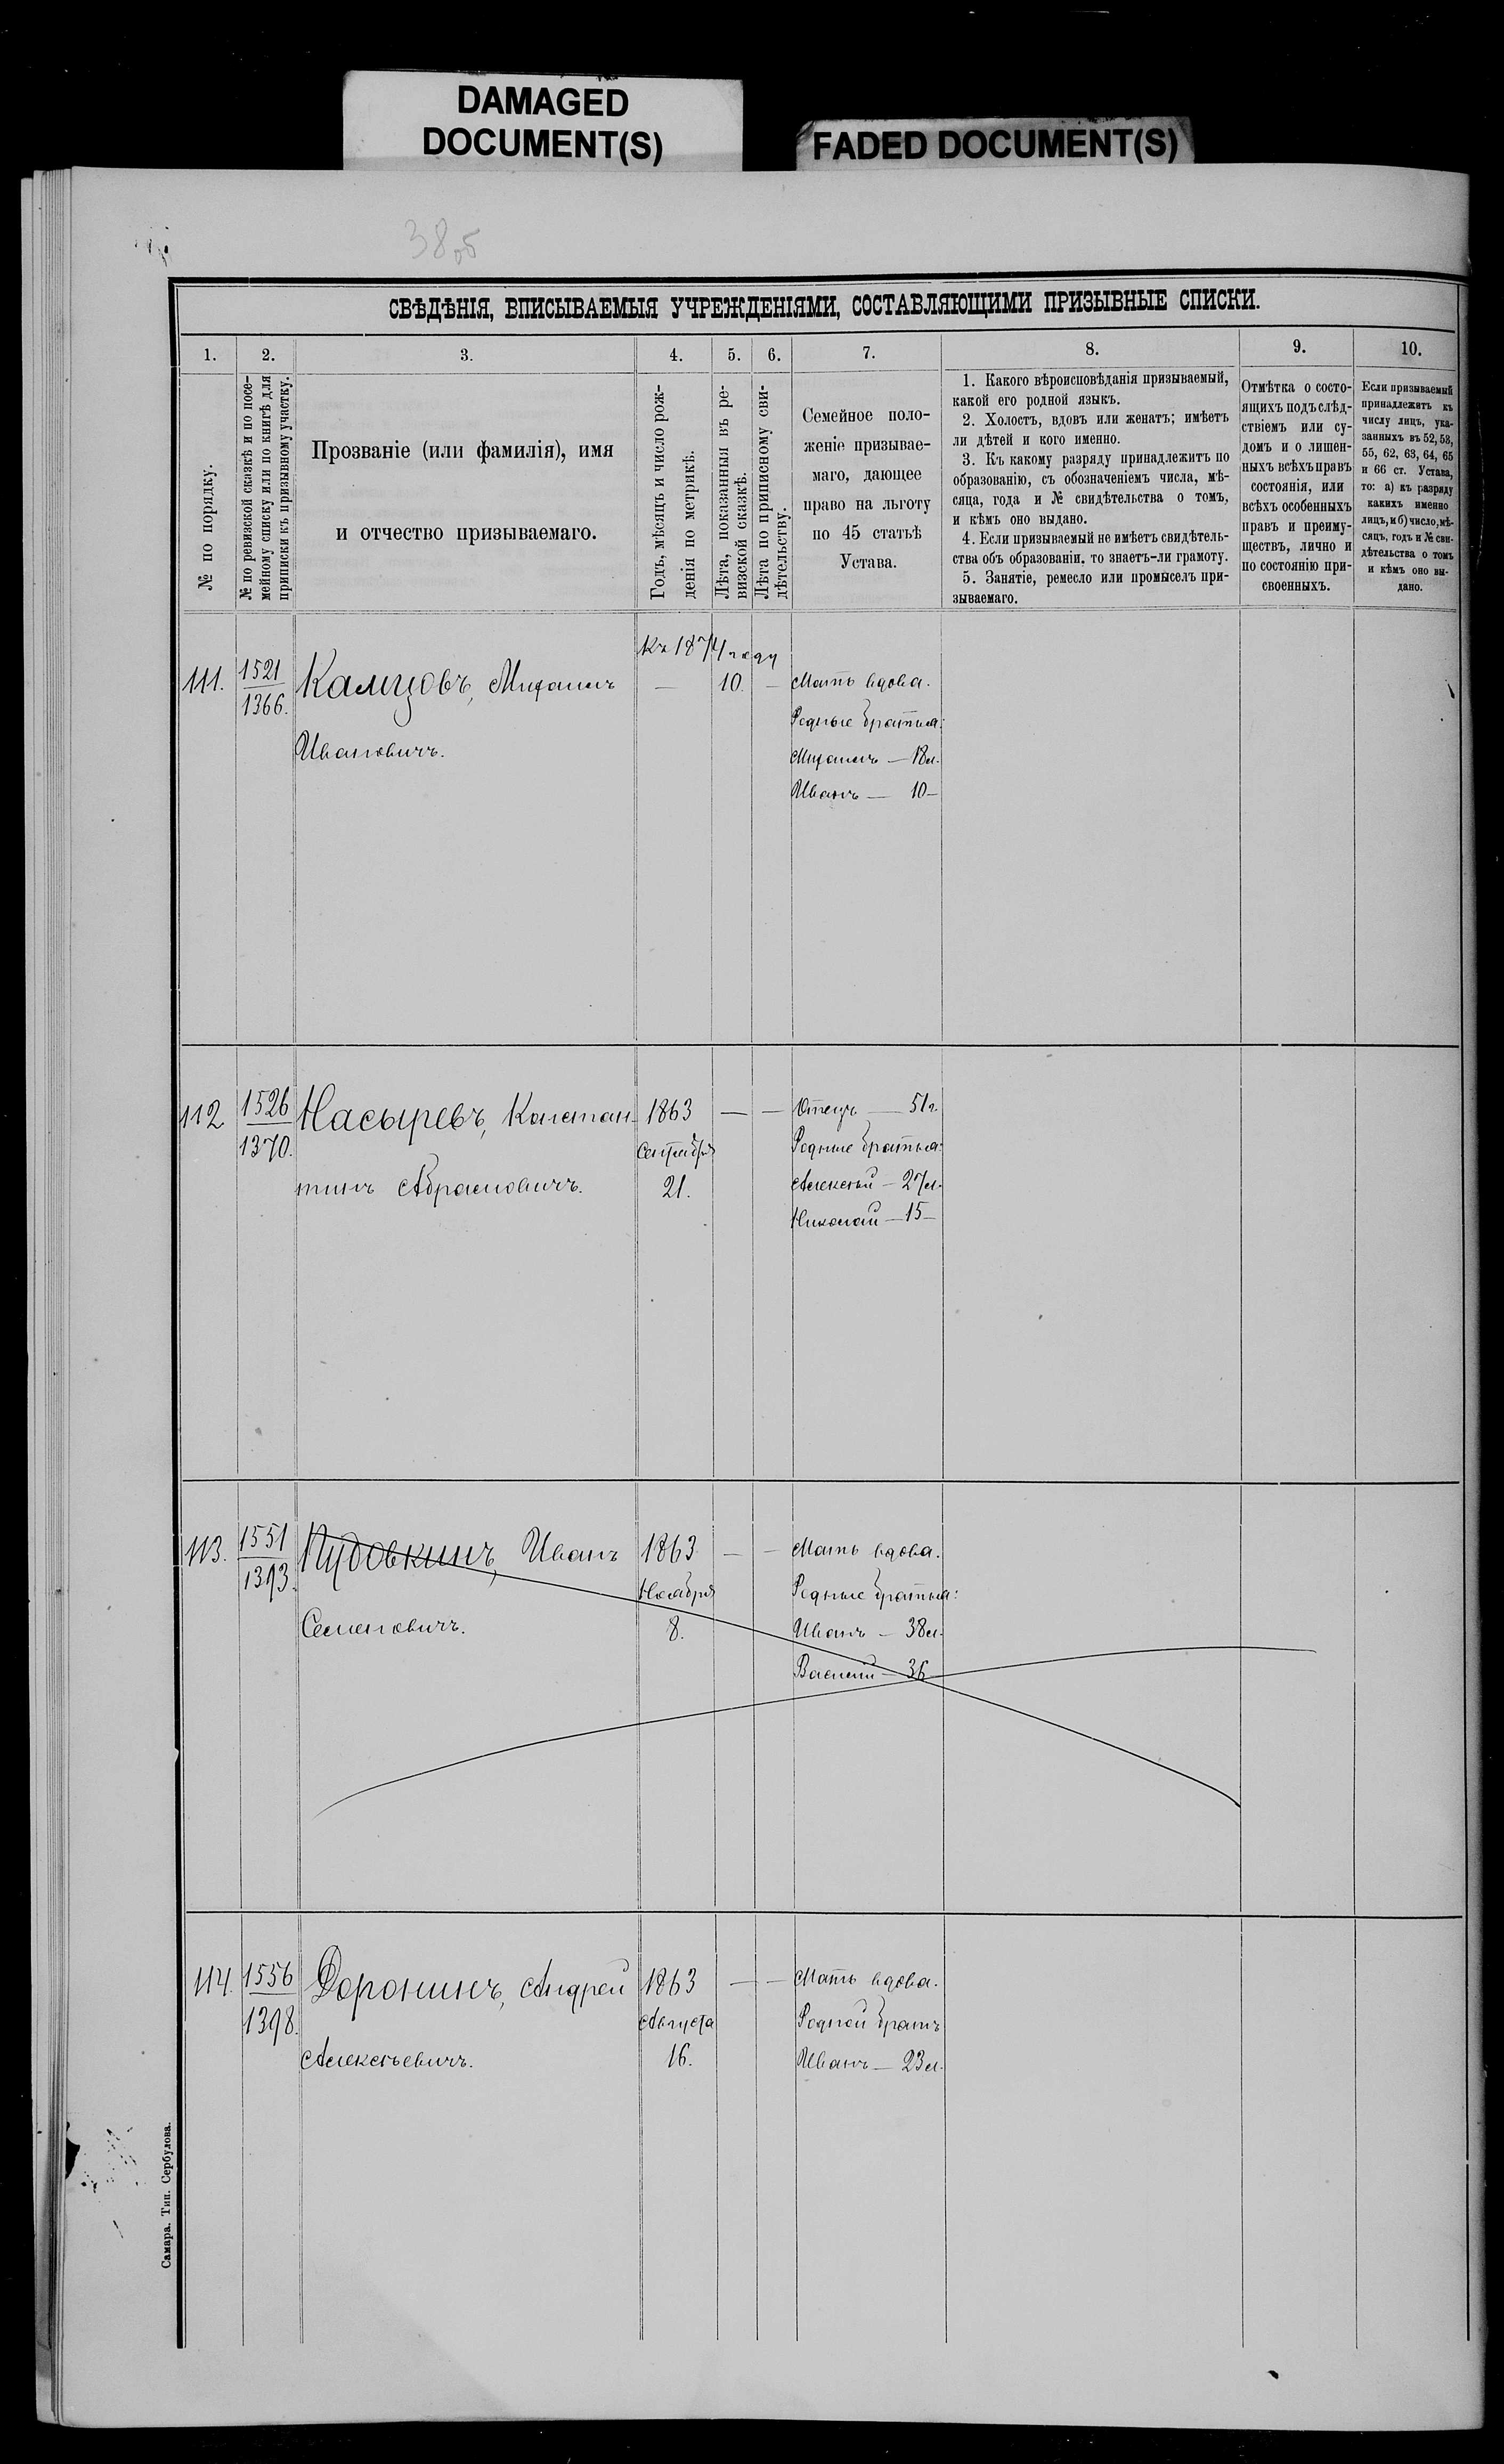 DAMAGED
DOCUMENT(S)
FADED DOCUMENT(S)
38об
СВѢДѢНІЯ, ВПИСЫВАЕМЫЯ УЧРЕЖДЕНІЯМИ, СОСТАВЛЯЮЩИМИ ПРИЗЫВНЫЕ СПИСКИ.
1. 2. 3. 4. 5. 6. 7. 8. 9. 10.
№ по порядку.
№ по ревизской сказкѣ и по посе-
мейному списку или по книгѣ для
приписки къ призывному участку.
Прозваніе (или фамилія), имя
и отчество призываемаго.
Годъ, мѣсяцъ и число рож-
денія по метрикѣ.
Лѣта, показанныя въ ре-
визской сказкѣ.
Лѣта по приписному сви-
дѣтельству.
Семейное поло-
женіе призывае-
маго, дающее
право на льготу
по 45 статьѣ
Устава.
1. Какого вѣроисповѣданія призываемый,
какой его родной языкъ.
2. Холостъ, вдовъ или женатъ; имѣетъ
ли дѣтей и кого именно.
3. Къ какому разряду принадлежитъ по
образованію, съ обозначеніемъ числа, мѣ-
сяца, года и № свидѣтельства о томъ,
и кѣмъ оно выдано.
4. Если призываемый не имѣетъ свидѣтель-
ства объ образованіи, то знаетъ-ли грамоту.
5. Занятіе, ремесло или промыселъ при-
зываемаго.
Отмѣтка о состо-
ящихъ подъ слѣд-
ствіемъ или су-
домъ и о лишен-
ныхъ всѣхъ правъ
состоянія, или
всѣхъ особенныхъ
правъ и преиму-
ществъ, лично и
по состоянію при-
своенныхъ.
Если призываемый
принадлежитъ къ
числу лицъ, ука-
занныхъ въ 52, 53,
55, 62, 63, 64, 65
и 66 ст. Устава,
то: а) къ разряду
какихъ именно
лицъ, и б) число, мѣ-
сяцъ, годъ и № сви-
дѣтельства о томъ
и кѣмъ оно вы-
дано.
Къ 1874 году
111. 1521 Камцовъ, Михаилъ — 10. — Мать вдова.
1366. Родные братья:
Ивановичъ. Михаилъ — 18 л.
Иванъ — 10 —
112 1526 Насыревъ, Констан- 1863 — — Отецъ — 51 г.
1370. Сентября Родные братья:
тинъ Абрамовичъ. 21. Алексѣй — 27 л.
Николай — 15 —
113. 1551 Пудовкинъ, Иванъ 1863 — — Мать вдова.
1393. Ноября Родные братья:
Семеновичъ. 8. Иванъ — 38 л.
Василій — 36 —
114. 1556 Доронинъ, Андрей 1863 — — Мать вдова.
1398. Августа Родной братъ
Алексѣевичъ. 16. Иванъ — 23 л.
Самара. Тип. Сербулова.